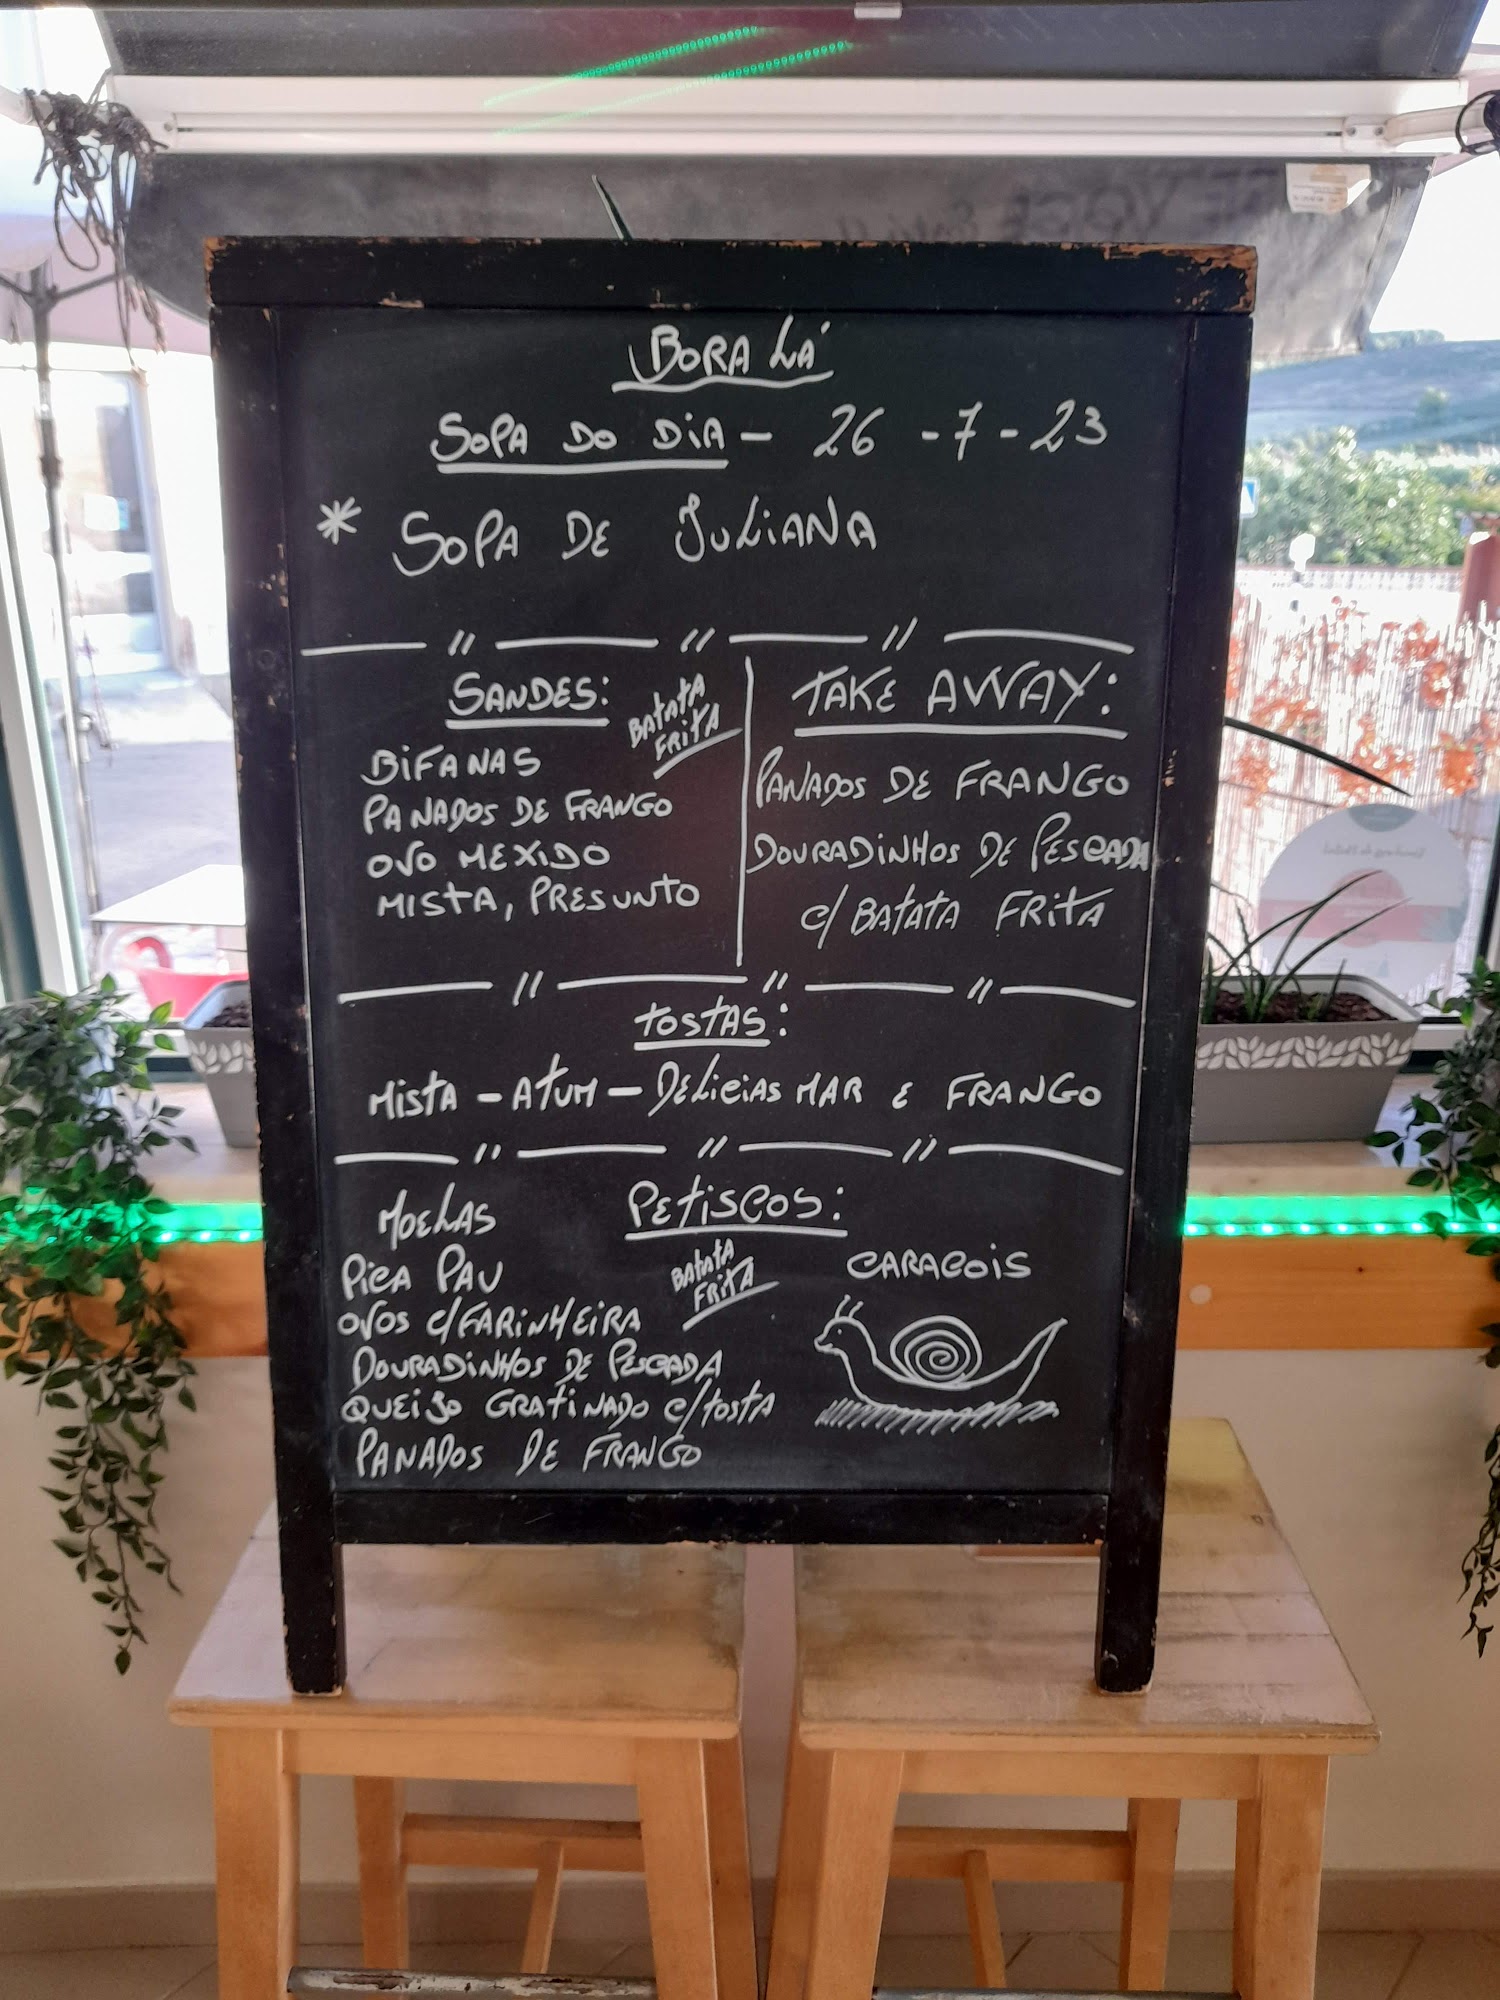 BORA LÁ
SOPA DO DIA - 26 - 7 - 23
* SOPA DE JULIANA
SANDES:
BATATA
FRITA
BIFANAS
PANADOS DE FRANGO
OVO MEXIDO
MISTA, PRESUNTO
TAKE AWAY:
PANADOS DE FRANGO
DOURADINHOS DE PESCADA
C/ BATATA FRITA
TOSTAS:
MISTA - ATUM - DELICIAS MAR E FRANGO
PETISCOS:
MOELAS
PICA PAU
OVOS C/FARINHEIRA
DOURADINHOS DE PESCADA
QUEIJO GRATINADO C/TOSTA
PANADOS DE FRANGO
BATATA
FRITA
CARACOIS